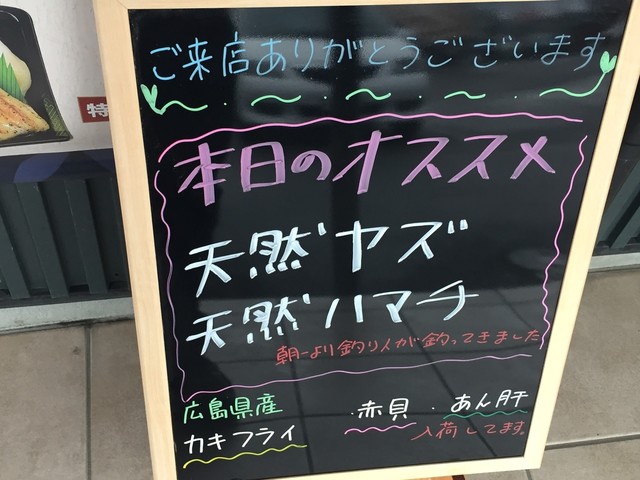 特
ご来店ありがとうございます
本日のオススメ
天然ヤズ
天然ハマチ
朝一より釣り人が釣ってきました
広島県産
カキフライ
・赤貝 ・あん肝
入荷してます。